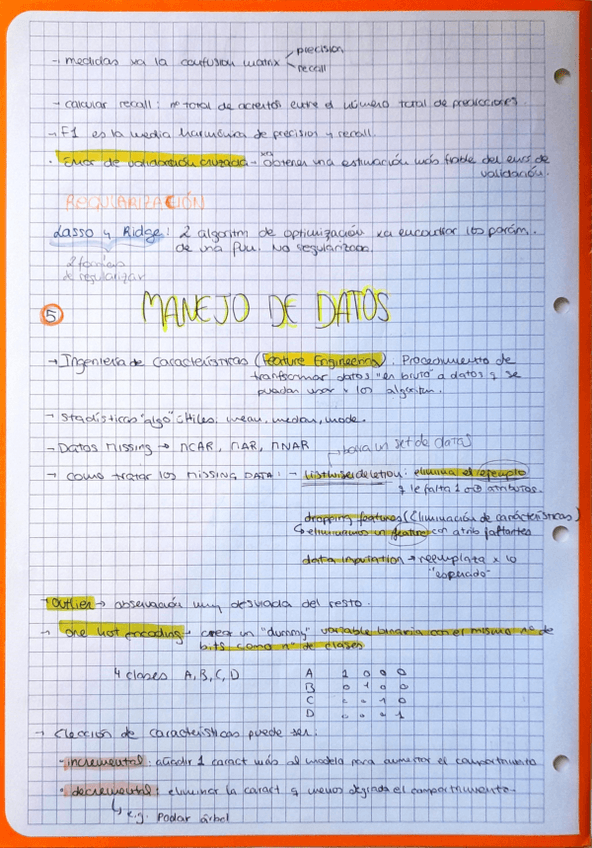 → medidas xa la confusion matrix precision
recall
→ calcular recall: nº total de aciertos entre el número total de predicciones.
→ F1 es la media harmónica de precision y recall.
· Error de validación cruzada → xra obtener una estimación más fiable del error de
validación.
REGULARIZACIÓN
Lasso y Ridge: 2 algoritm de optimización xa encontrar los parám.
de una fun. No regularizan.
2 formas
de regularizar
5 MANEJO DE DATOS
→ Ingeniería de Características (Feature Engineering). Procedimiento de
transformar datos "en bruto" a datos q se
puedan usar x los algoritm.
→ Stadísticos "algo" útiles: mean, median, mode.
→ Datos missing → MCAR, MAR, MNAR
un set de datos
→ como tratar los MISSING DATA: → listwise deletion: elimina el ejemplo
q le falta 1 o atributos.
dropping features (Eliminación de características)
↳ eliminamos un feature con atrib faltantes
data imputation → reemplaza x lo
"esperado"
→ Outlier → observación muy desviada del resto.
→ one hot encoding → crear un "dummy" variable binaria con el mismo nº de
bits como nº de clases
4 clases A, B, C, D A 1 0 0 0
B 0 1 0 0
C 0 0 1 0
D 0 0 0 1
→ Elección de características puede ser:
· incremental: añadir 1 caract más al modelo para aumentar el comportmiento
· decremental: eliminar la caract q menos degrada el comportmiento.
↳ e.g. Podar árbol